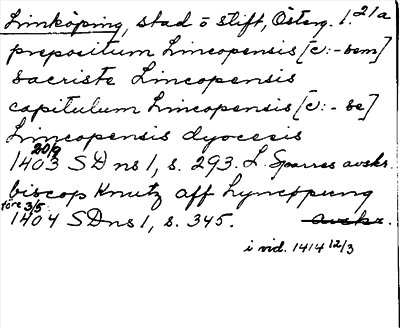 Linköping, stad o stift, Österg. l. 21a
prepositum Lincopensis [v: -sem]
sacriste Lincopensis
capitulum Lincopensis [v: - se]
Lincopensis dyocesis
20/9
1403 SDns 1, s. 293. L. Sparres avskr.
biscop Knutz aff Lyncöpung
före 3/5
1404 SDns 1, s. 345. avskr.
i vid. 1414 12/3